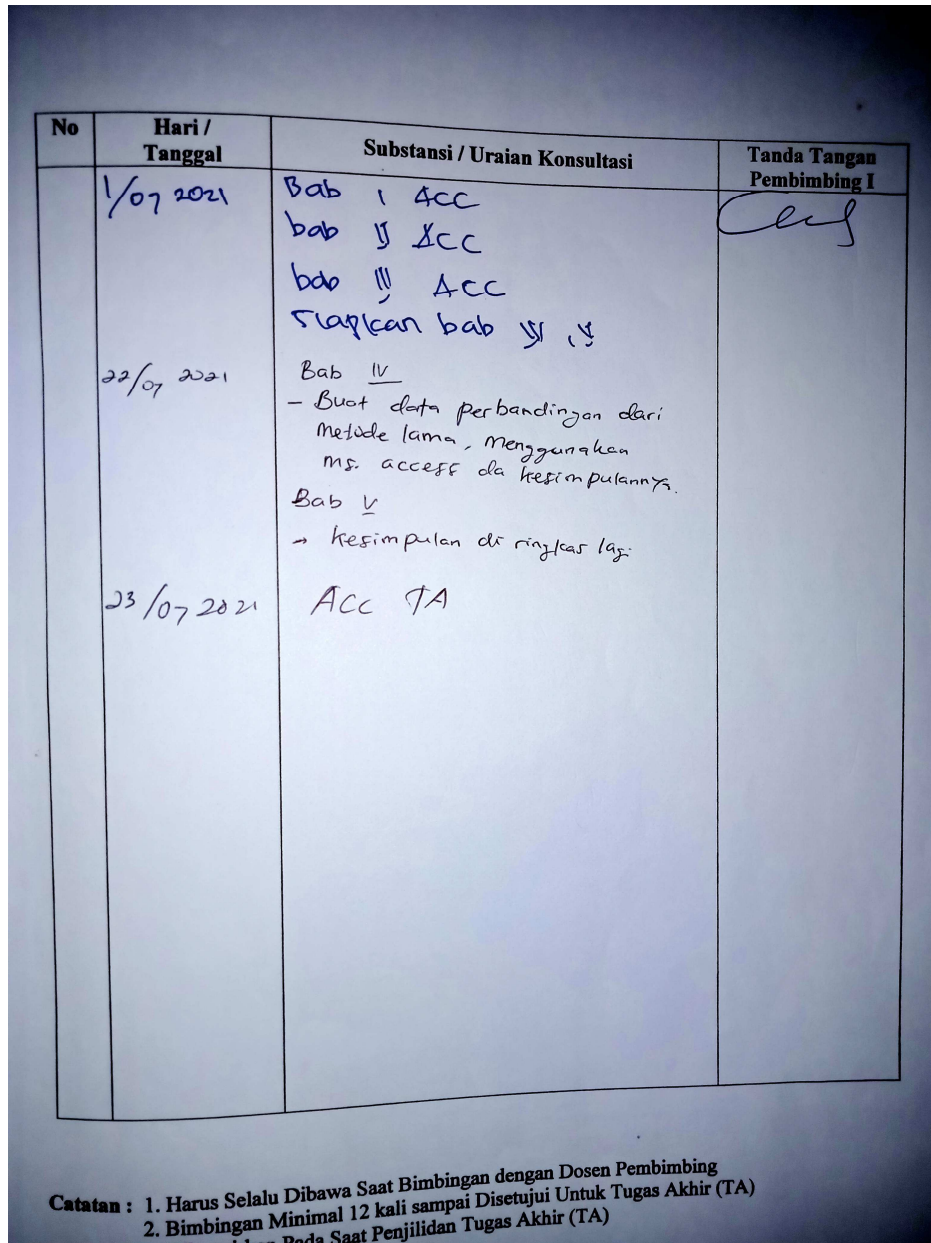 No
Hari /
Tanggal
Substansi / Uraian Konsultasi
Tanda Tangan
Pembimbing I
1/07 2021
Bab I ACC
bab II ACC
bab III ACC
siapkan bab IV, V
22/07 2021
Bab IV
- Buat data perbandingan dari
metode lama, menggunakan
ms. access da kesimpulannya.
Bab V
→ kesimpulan di ringkas lagi
23/07 2021
ACC TA
Catatan : 1. Harus Selalu Dibawa Saat Bimbingan dengan Dosen Pembimbing
2. Bimbingan Minimal 12 kali sampai Disetujui Untuk Tugas Akhir (TA)
Pada Saat Penjilidan Tugas Akhir (TA)